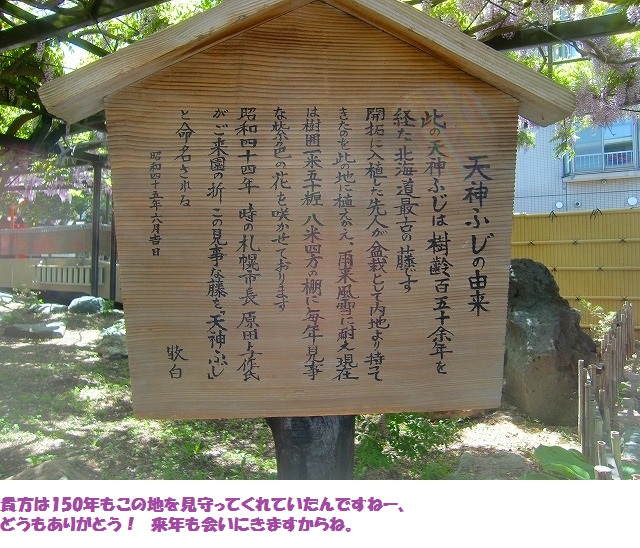 天神ふじの由来
此の天神ふじは樹齢百五十余年を
経た北海道最古の藤です
開拓に入植した先人が盆栽として内地より持て
きたのを此の地に植えかえ、雨来風雪に耐え現在
は樹囲一米五十糎 八米四方の棚に毎年見事
な紫色の花を咲かせております
昭和四十四年 時の札幌市長 原田与作氏
がご来園の折 この見事な藤を「天神ふじ」
と命名される
敬白
昭和四十五年六月吉日
貴方は150年もこの地を見守ってくれていたんですねー、
どうもありがとう！ 来年も会いにきますからね。